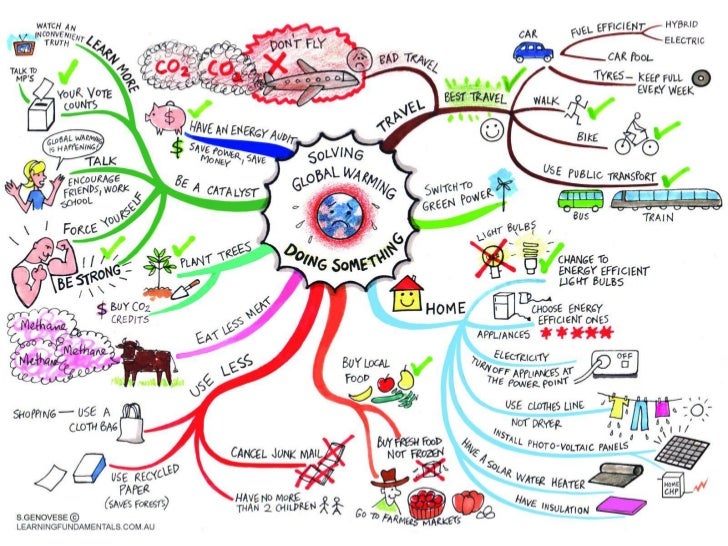 SOLVING
GLOBAL WARMING
DOING SOMETHING
TRAVEL
BAD TRAVEL
DON'T FLY
CO2
CO2
BEST TRAVEL
CAR
FUEL EFFICIENT
HYBRID
ELECTRIC
CAR POOL
TYRES — KEEP FULL
EVERY WEEK
WALK
BIKE
USE PUBLIC TRANSPORT
BUS
TRAIN
SWITCH TO
GREEN POWER
HOME
LIGHT BULBS
CHANGE TO
ENERGY EFFICIENT
LIGHT BULBS
APPLIANCES
CHOOSE ENERGY
EFFICIENT ONES
ELECTRICITY
TURN OFF APPLIANCES AT
THE POWER POINT
OFF
USE CLOTHES LINE
NOT DRYER
INSTALL PHOTO-VOLTAIC PANELS
HOME
CHP
HAVE A SOLAR WATER HEATER
HAVE INSULATION
BUY LOCAL
FOOD
BUY FRESH FOOD
NOT FROZEN
GO TO FARMERS MARKETS
USE LESS
CANCEL JUNK MAIL
HAVE NO MORE
THAN 2 CHILDREN
USE RECYCLED
PAPER
(SAVES FORESTS)
SHOPPING — USE A
CLOTH BAG
EAT LESS MEAT
Methane
Methane
Methane
PLANT TREES
$ BUY CO2
CREDITS
BE A CATALYST
LEARN MORE
WATCH AN
INCONVENIENT
TRUTH
TALK TO
MP'S
YOUR VOTE
COUNTS
TALK
GLOBAL WARMING
IS HAPPENING!
ENCOURAGE
FRIENDS, WORK
SCHOOL
FORCE YOURSELF
BE STRONG
HAVE AN ENERGY AUDIT
$
$ SAVE POWER, SAVE
MONEY
S.GENOVESE ©
LEARNINGFUNDAMENTALS.COM.AU